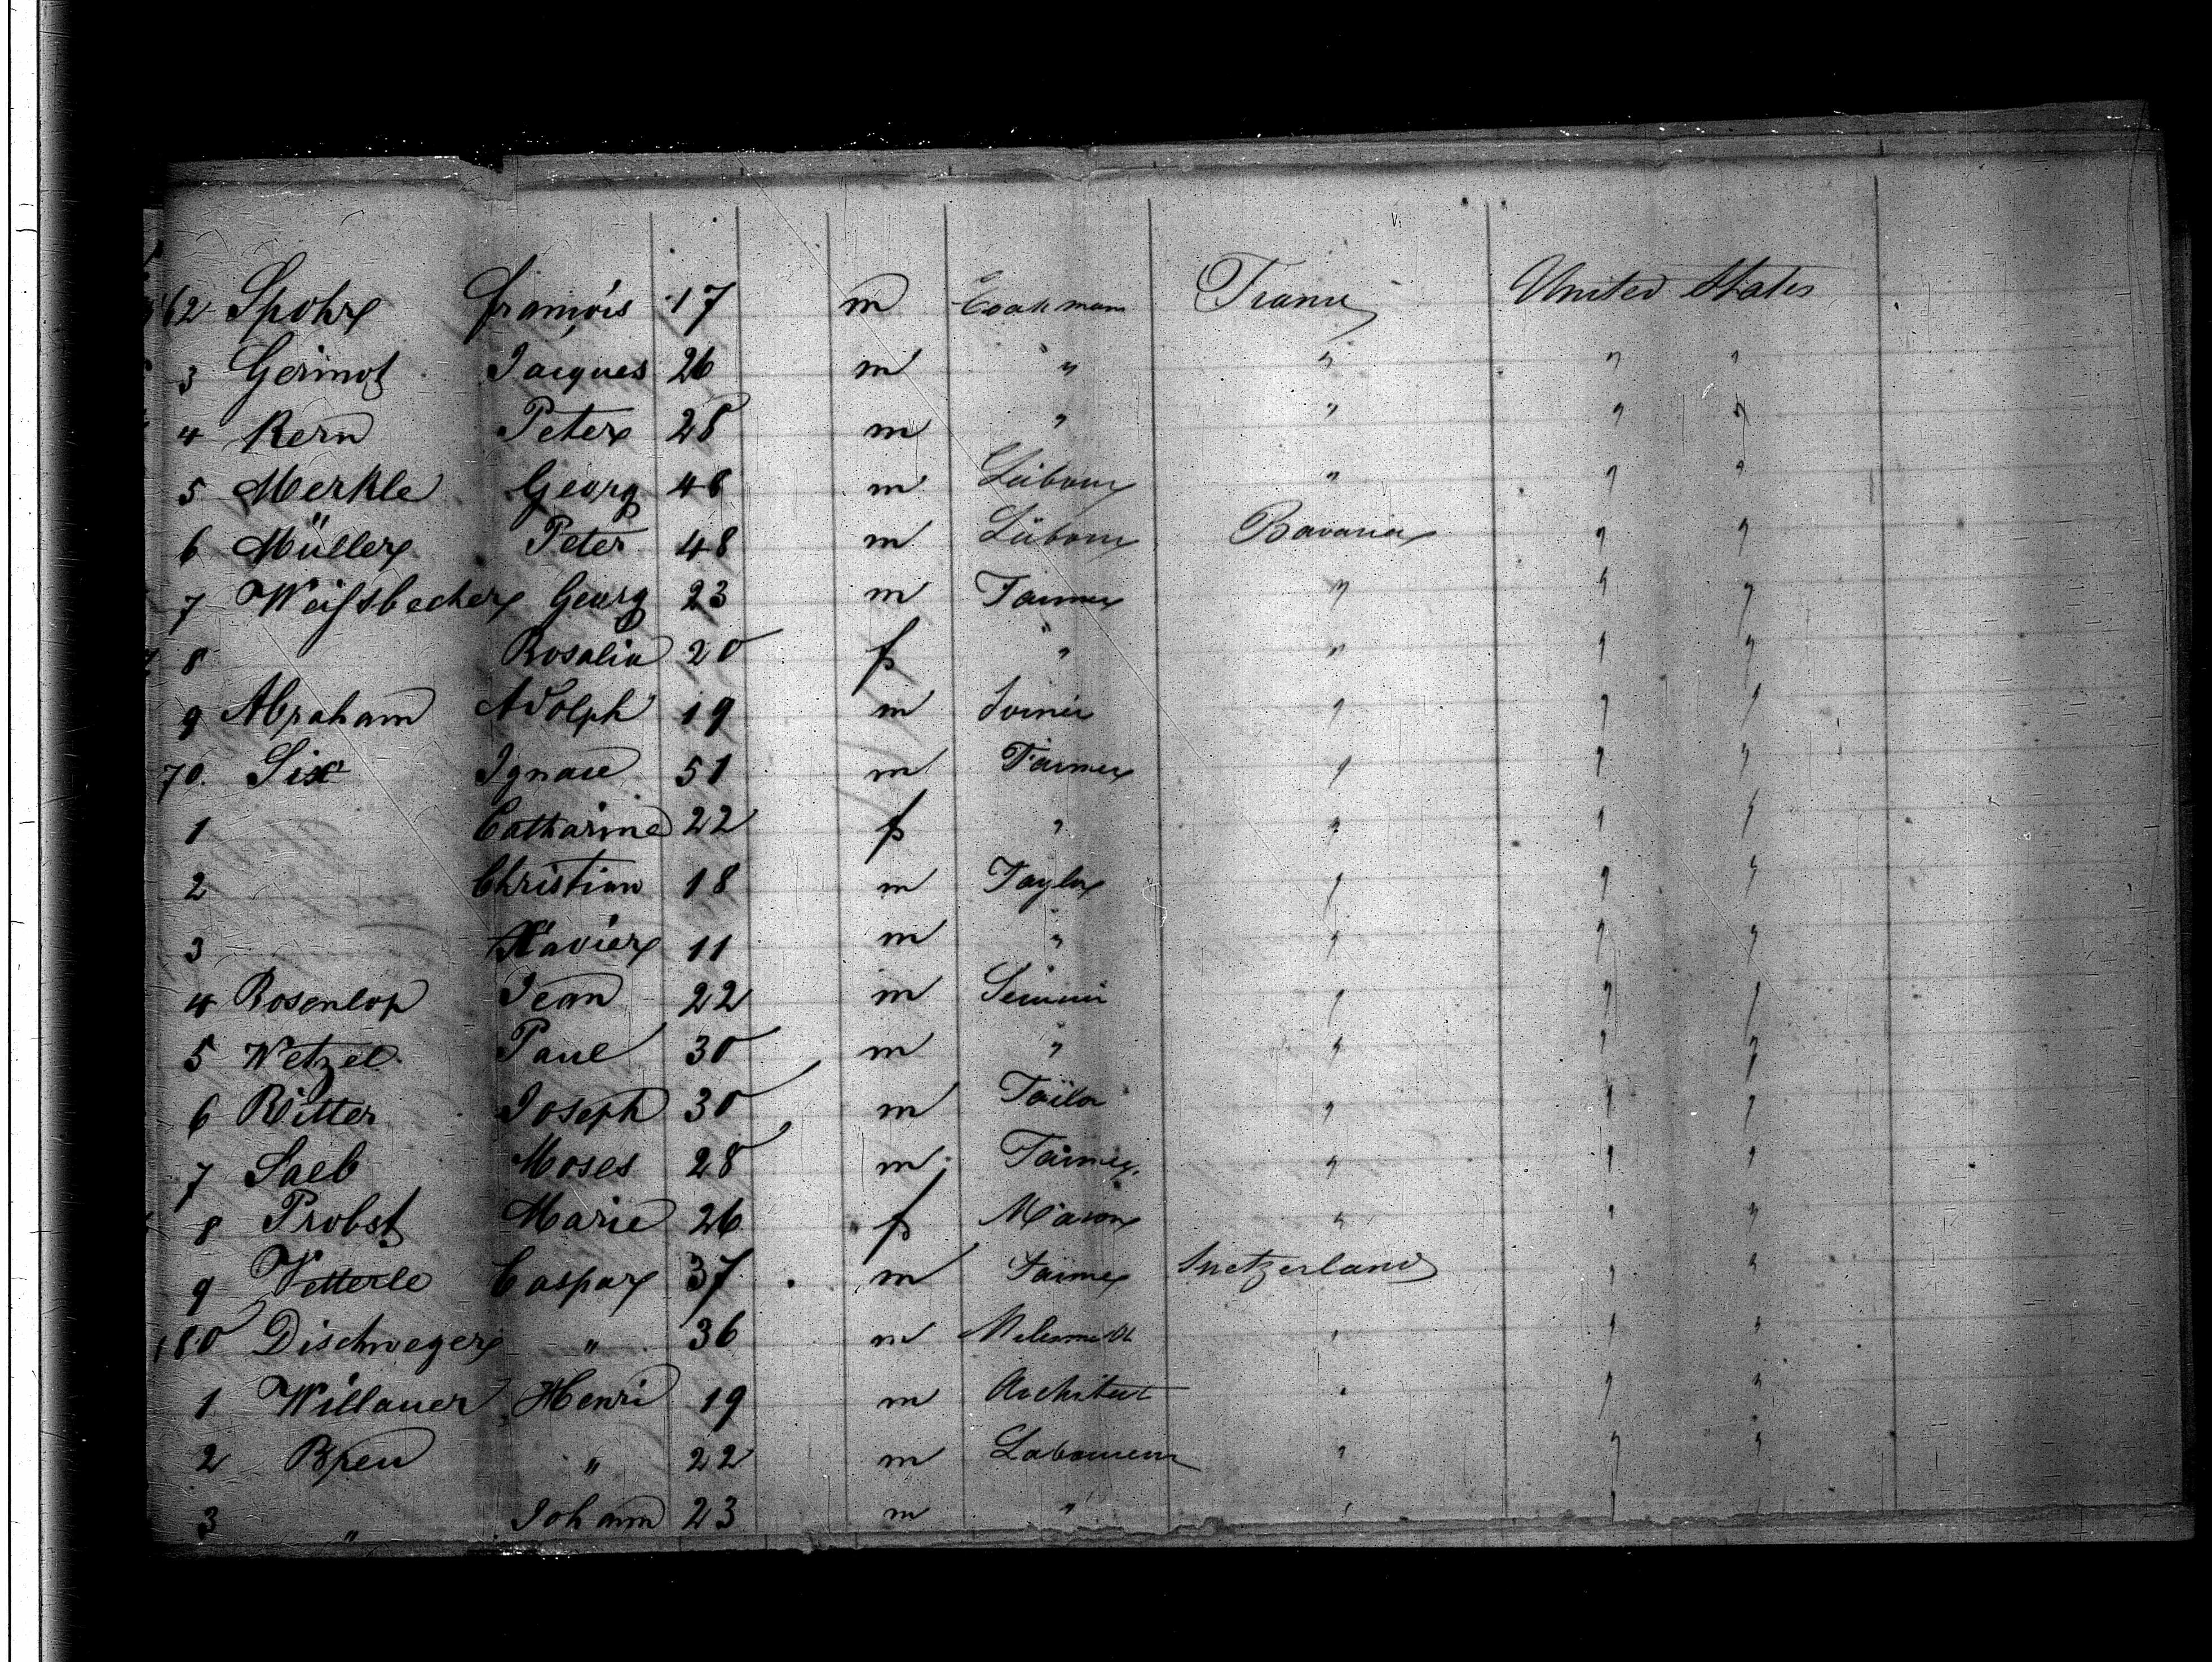 162 Spohr François 17 m Coakman France United States
3 Gerinot Jacques 26 m " " " "
4 Kern Peter 28 m " " " "
5 Merkle Georg 48 m " " "
6 Müller Peter 48 m Bavaria " "
7 Weissbecker Georg 23 m Farmer " " "
8 Rosalia 20 f " " " "
9 Abraham Adolph 19 m " " "
70. Six Ignace 51 m Farmer " " "
1 Catharine 22 f " " " "
2 Christian 18 m Taylor " " "
3 Xavier 11 m " " " "
4 Rosenlop Jean 22 m " " "
5 Wetzel Paul 30 m " " " "
6 Ritter Joseph 30 m Tailor " " "
7 Saeb Moses 28 m Farmer " " "
8 Probst Marie 26 f Mason " " "
9 Vetterle Caspar 37 m Farmer Swetzerland " "
180 Dischweger " 36 m " " "
1 Willauer Henri 19 m Architect " " "
2 " 22 m " " "
3 " Johann 23 m " " "